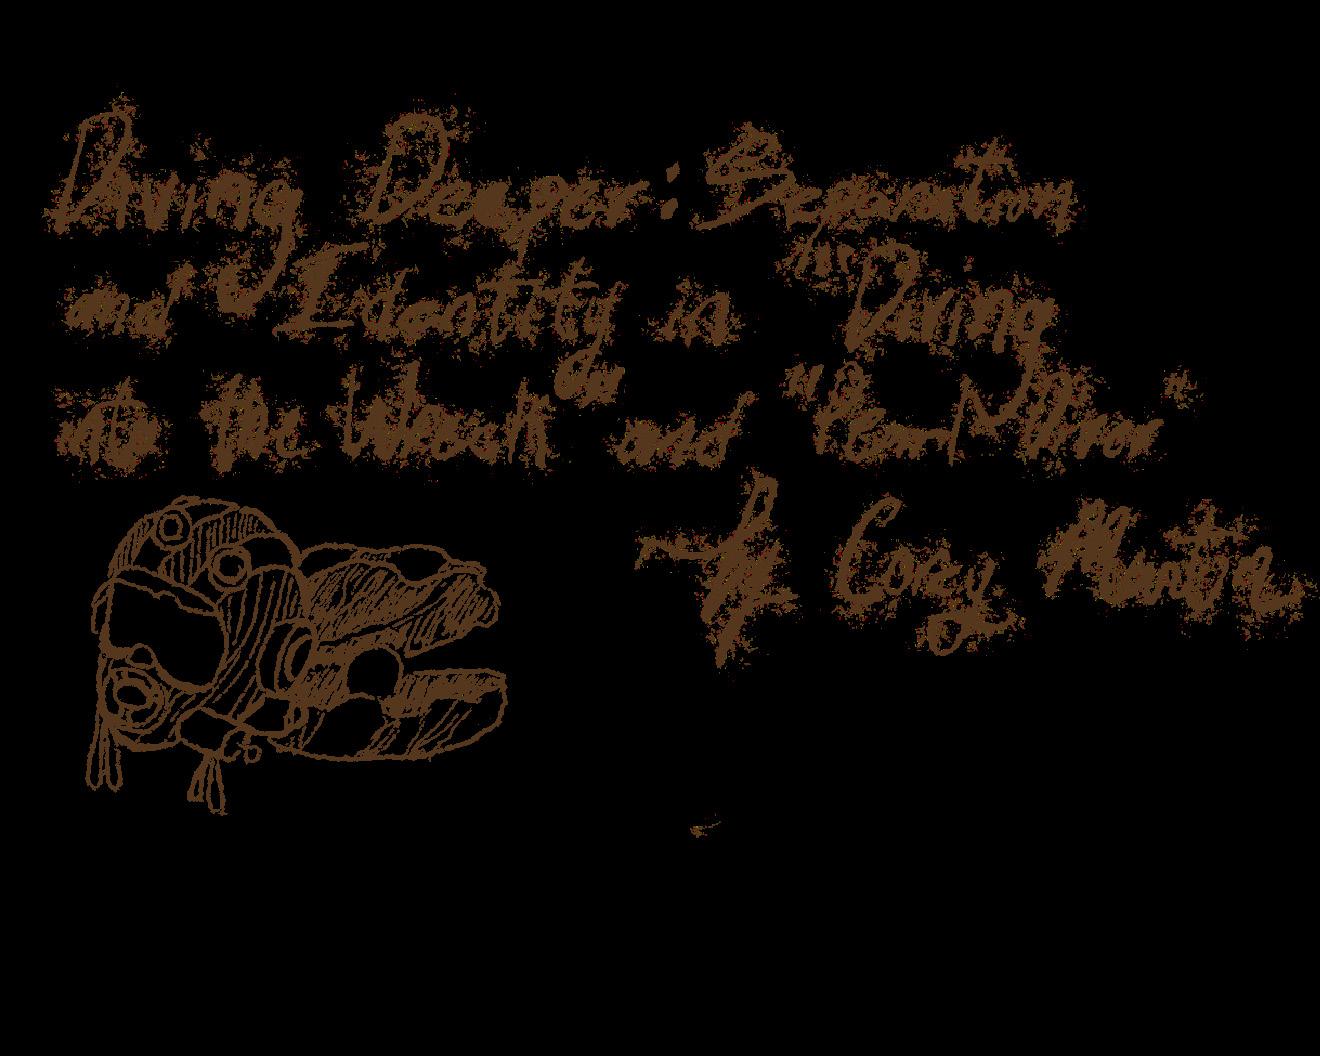 Diving Deeper: Separation
and Identity in "Diving
into the Wreck" and "Pearl Mirror"
~by Corey Martin